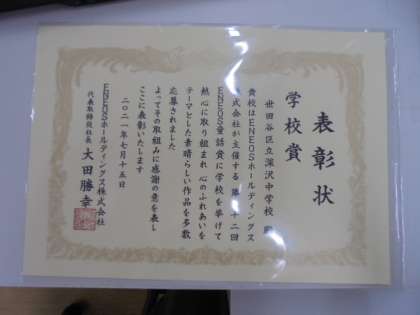 表彰状
学校賞
世田谷区立深沢中学校 殿
貴校はENEOSホールディングス
株式会社が主催する 第五十二回
ENEOS童話賞に学校を挙げて
熱心に取り組まれ 心のふれあいを
テーマとした素晴らしい作品を多数
応募されました
よってその取組みに感謝の意を表し
ここに表彰いたします
二〇二一年七月十五日
ENEOSホールディングス株式会社
代表取締役社長 大田勝幸